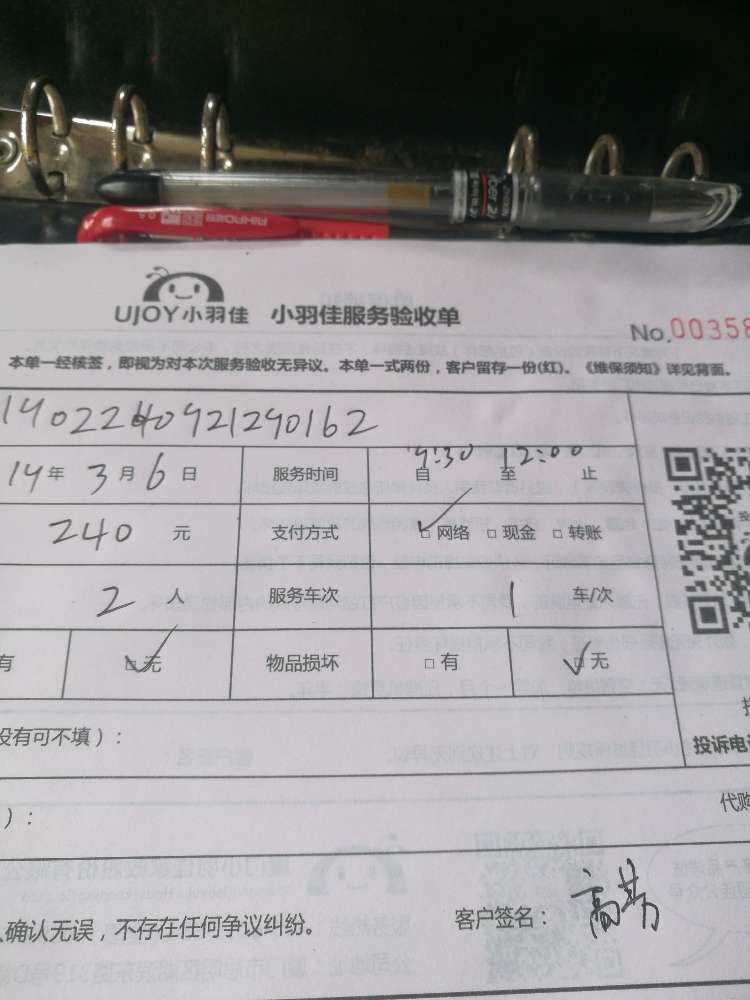 UJOY小羽佳 小羽佳服务验收单
No.00358
本单一经核签，即视为对本次服务验收无异议。本单一式两份，客户留存一份(红)。《维保须知》详见背面。
1402240921290162
14年 3月 6日 服务时间 自 9:30 至 12:00 止
240 元 支付方式 □网络 □现金 □转账
2 人 服务车次 1 车/次
有 □无 物品损坏 □有 □无
没有可不填）：
投诉电
代购
）：
人确认无误，不存在任何争议纠纷。 客户签名：